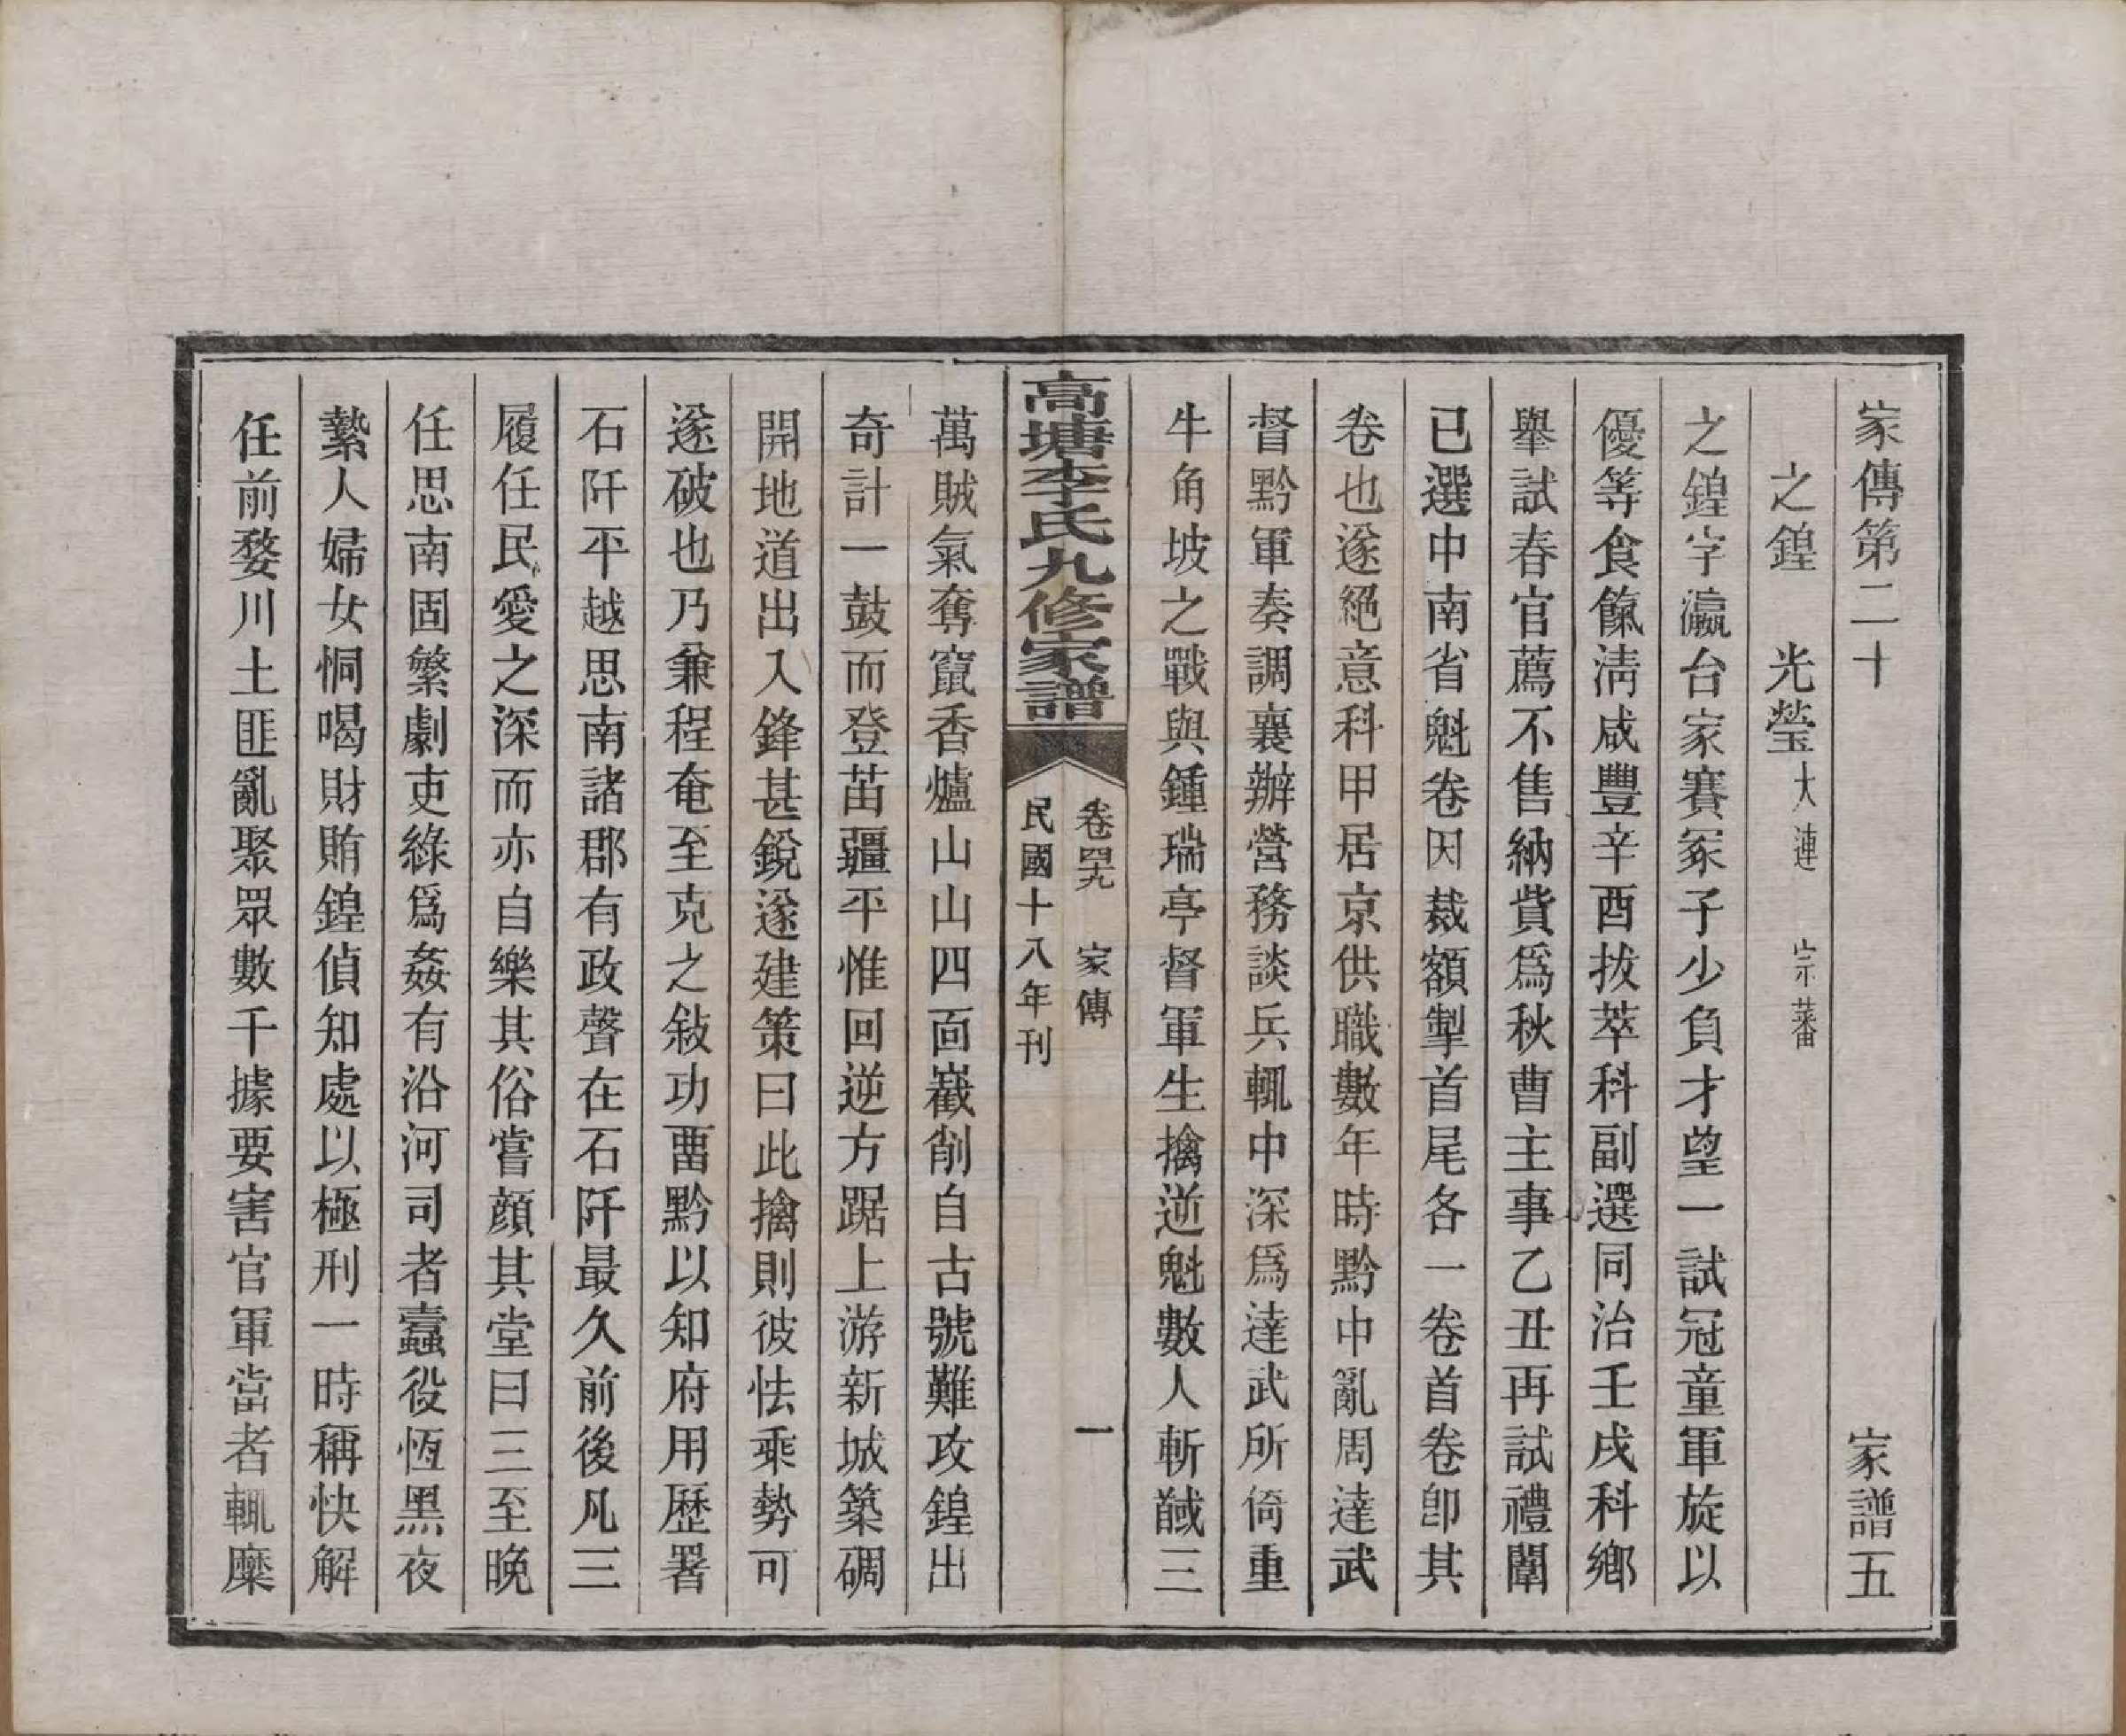 家傳第二十　家譜五
之鍠　光瑩　大漣　宗蕃
之鍠字瀛台家賽冢子少負才望一試冠童軍旋以
優等食餼淸咸豐辛酉拔萃科副選同治壬戌科鄉
舉試春官薦不售納貲爲秋曹主事乙丑再試禮闈
已選中南省魁卷因裁額掣首尾各一卷首卷卽其
卷也遂絕意科甲居京供職數年時黔中亂周達武
督黔軍奏調襄辦營務談兵輒中深爲達武所倚重
牛角坡之戰與鍾瑞亭督軍生擒逆魁數人斬馘三
高塘李氏九修家譜
卷四九　家傳　一
民國十八年刊
萬賊氣奪竄香爐山山四面巀削自古號難攻鍠出
奇計一鼓而登苗疆平惟回逆方踞上游新城築碉
開地道出入鋒甚銳遂建策曰此擒則彼怯乘勢可
遂破也乃兼程奄至克之敍功畱黔以知府用歷署
石阡平越思南諸郡有政聲在石阡最久前後凡三
履任民愛之深而亦自樂其俗嘗顔其堂曰三至晚
任思南固繁劇吏綠爲姦有沿河司者蠹役恆黑夜
縶人婦女恫喝財賄鍠偵知處以極刑一時稱快解
任前婺川土匪亂聚眾數千據要害官軍當者輒糜